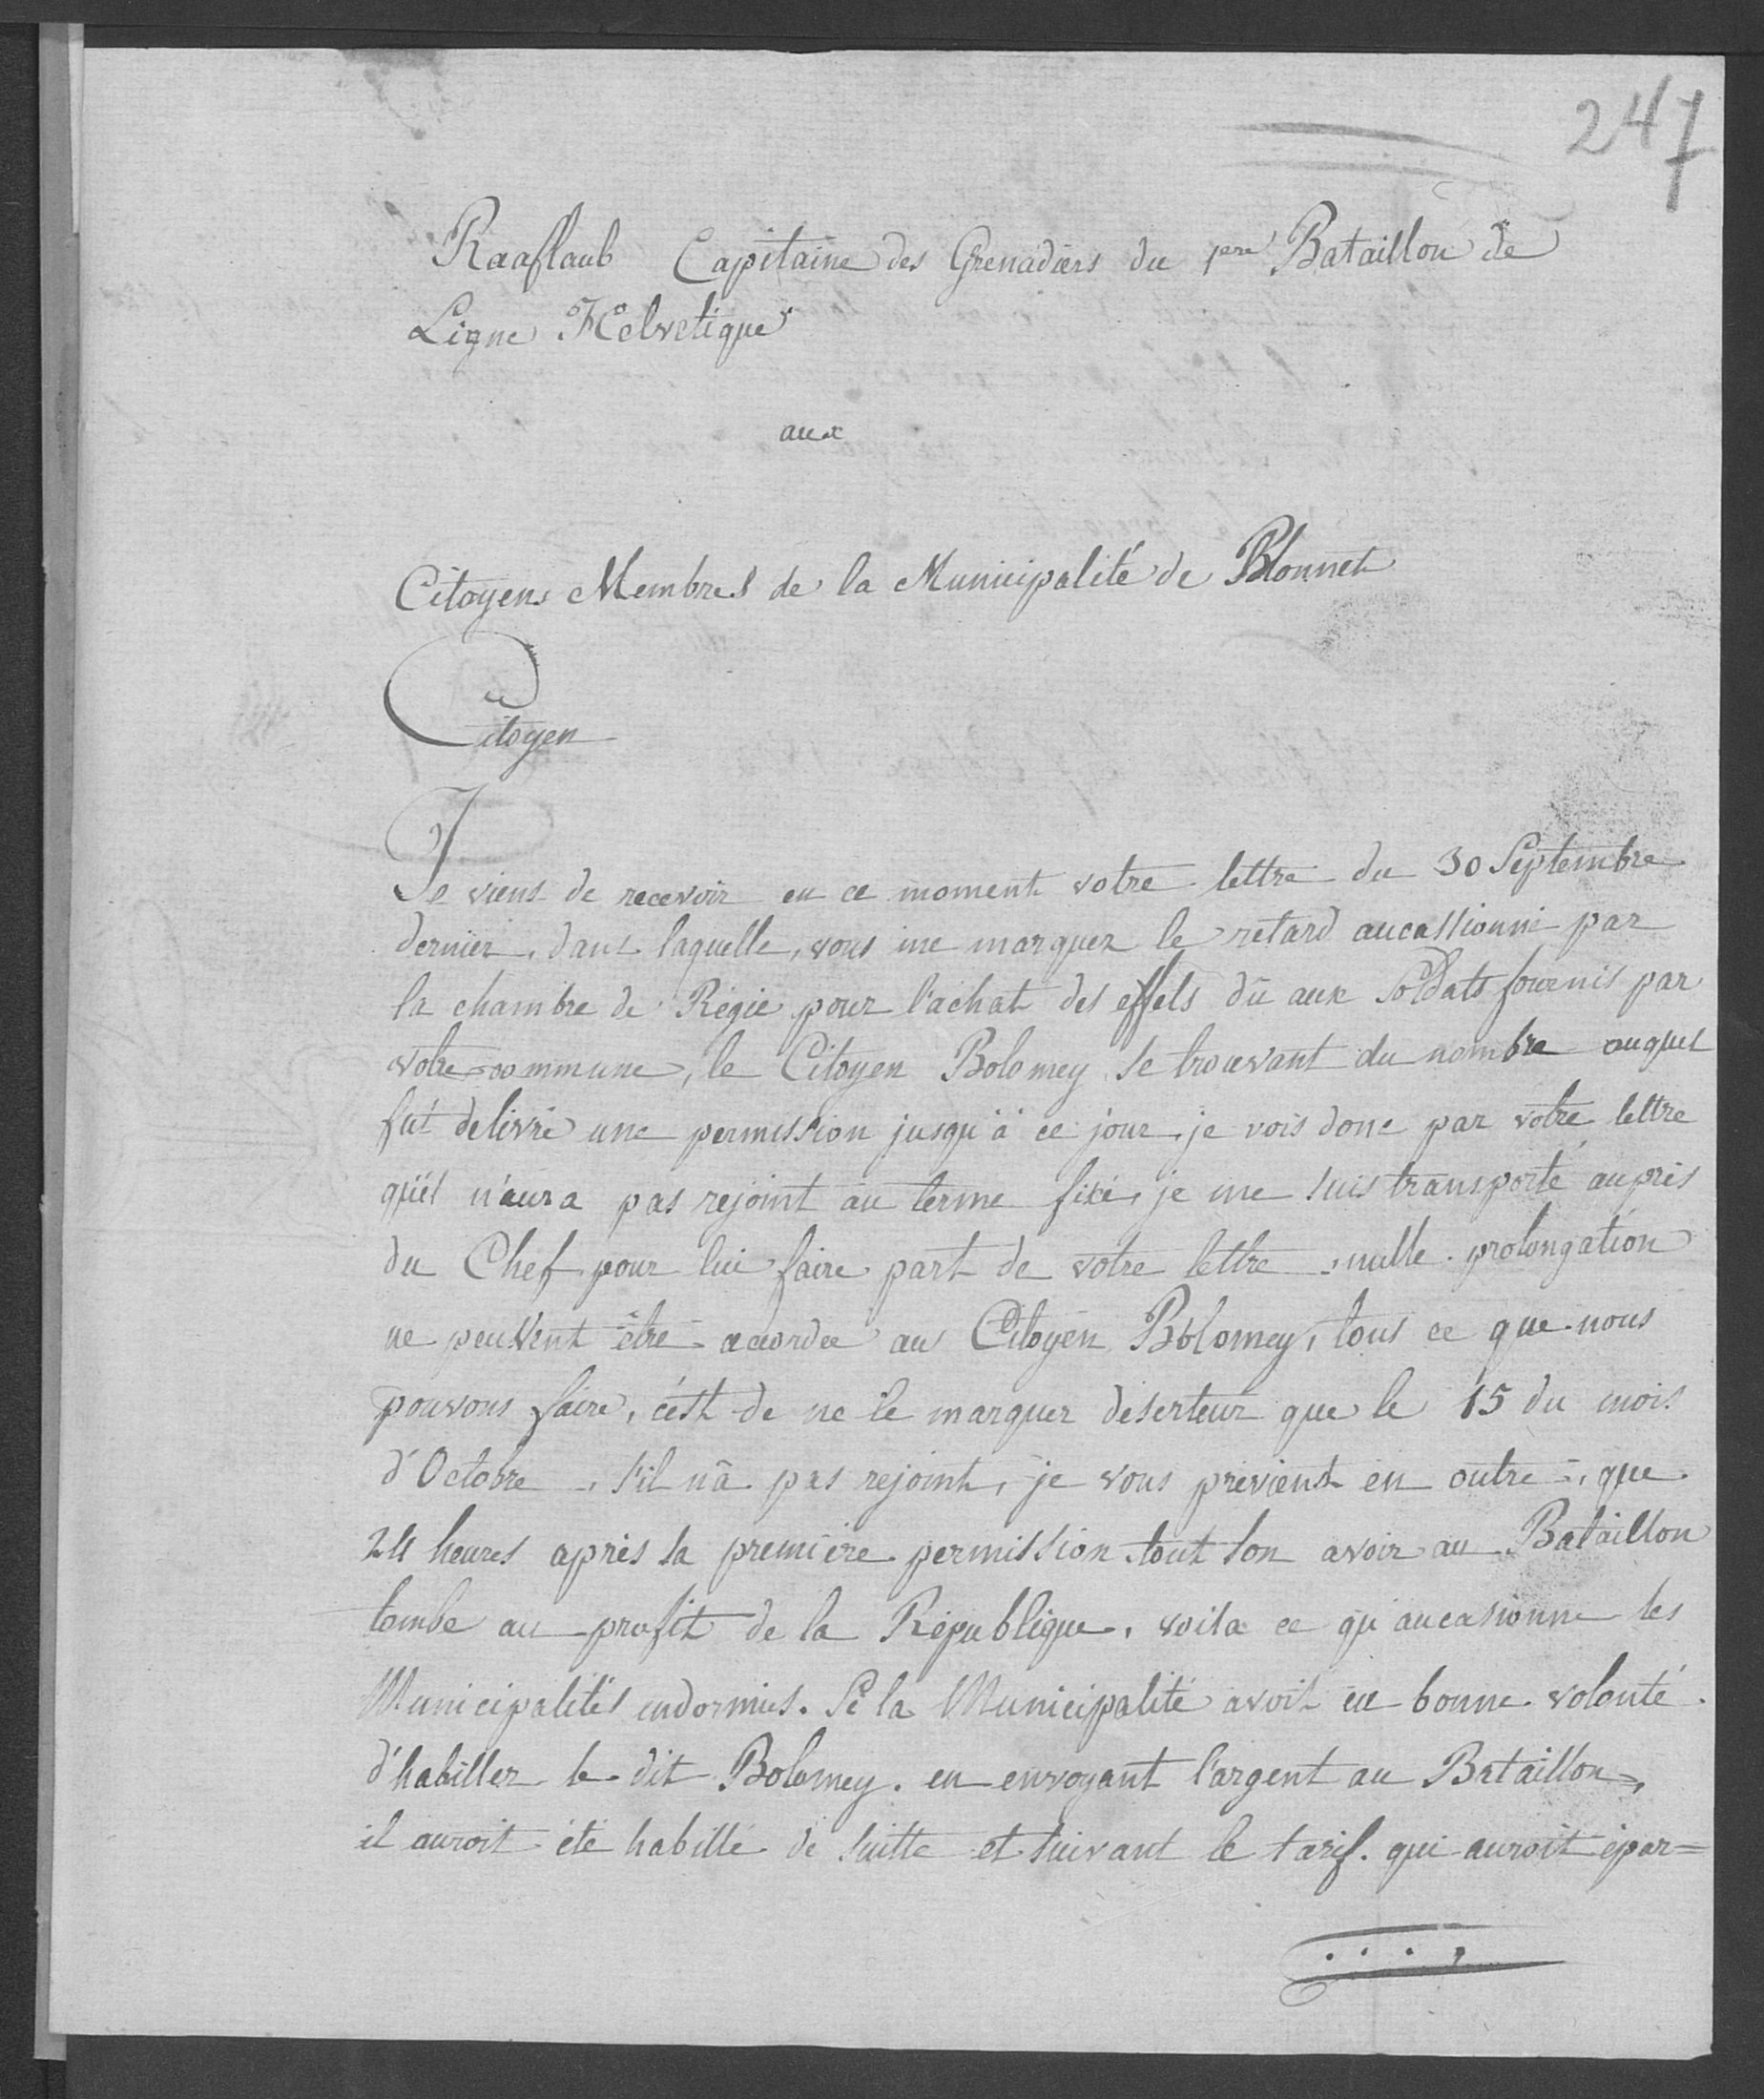 247
Raaflaub Capitaine des Grenadiers du 1ere Bataillon de
Ligne Helvetique
aux
Citoyens Membres de la Municipalité de Blonnet
Citoyen
Je viens de recevoir en ce moment votre lettre du 30 Septembre
dernier, dans laquelle, vous me marquez le retard aucassionné par
la chambre de Régie pour l'achat des effets dû aux Soldats fournis par
votre commune, le Citoyen Bolomey se trouvant du nombre auquel
fut delivré une permission jusqu'à ce jour, je vois donc par votre lettre
qu'il n'aura pas rejoint au terme fixé, je me suis transporté auprès
du Chef pour lui faire part de votre lettre, nulle prolongation
ne peuvent être acordée au Citoyen Bolomey, tous ce que nous
pouvons faire, c'est de ne le marquer deserteur que le 15 du mois
d'Octobre, s'il n'a pas rejoint, je vous previent en outre, que
24 heures après sa première permission tout son avoir au Bataillon
tombe au profit de la République, voila ce qu'aucasionne les
Municipalités endormies. Si la Municipalité avoit eu bonne volonté
d'habiller le dit Bolomey. en envoyant l'argent au Bataillon,
il auroit été habillé de suitte et suivant le tarif. qui auroit épar=